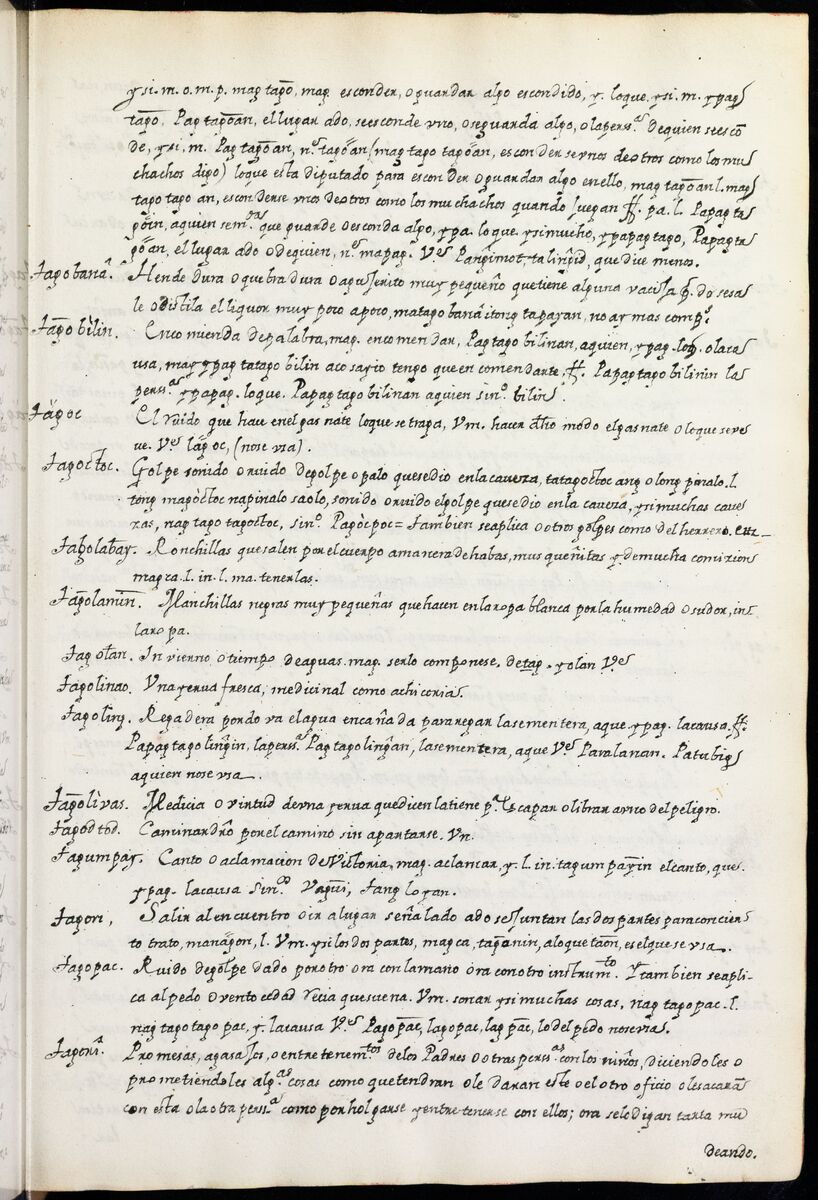 y si. m. o. m. p. mag tago, mag. esconder, o guardar algo escondido, y. loque, y si. m. ypag
tago. Pag tagoan, el lugar ado, se esconde vno, o se guarda algo, o la pers.ª de quien se escō
de, y si, m. Pag tagoan, n.º tagoan (mag tago tagoan, esconderse vnos de otros como los mu
chachos digo) lo que esta diputado para esconder o guardar algo en ello, mag tagoan l. mag
tago tago an, esconderse vnos de otros como los muchachos quando juegan ff. pa. l. Papag ta
goin, a quien que guarde o esconda algo, ypa. loque. y si mucho, ypapag tago, Papag ta
goan, el lugar ado o de quien, n.º mapag. V.es Pangimot, talingid, que dice menos.
Tagobana. Hendedura o quebradura o agujerito muy pequeño que tiene alguna vacija q. do se sa
le o distila el liquor muy poco a poco, matagobana itong tapayan, no ay mas comp.º
Tago bilin. Encomienda de palabra, mag. encomendar, Pag tago bilinan, a quien, ypag. o la ca
usa, may ypag tatago bilin aco sa yio tengo que encomendarte, ff. Papag tago bilinin la
pers.ª ypapag. loque. Papag tago bilinan a quien sin.º bilin.
Tagoc El ruido que hace en el gasnate lo que se traga, Vm. hacer dho modo el gasnate o lo que se ve
ve. V.es lagoc, (no se vsa).
Tagoctoc. Golpe sonido o ruido de golpe o palo que se dio en la caveza, tatagoctoc ang olong pinalo. l.
tong magoctoc na pinalo sa olo, sonido o ruido el golpe que se dio en la caveza, y si muchas cave
zas, nag tago tagoctoc, sin.º Pagocpoc = tambien se aplica o otros golpes como del herrero.
Tagolabay. Ronchillas que salen por el cuerpo a manera de habas, mus queñitas y de mucha comixion
magca. l. in. l. ma. tenerlas.
Tagolamin. Manchillas negras muy pequeñas que hacen en la ropa blanca por la humedad o sudor, in
la ropa.
Tagolan. Invierno o tiempo de aguas. mag. serlo componese. de tag. y olan V.es
Tagolinao. Vna yerua fresca, medicinal como achicoria.
Tagoling. Regadera por do va el agua encañada para regar la sementera, a que. ypag. la causa. ff.
Papag tagolingin, la pers.ª Pag tagolingan, la sementera, a que V.es Paralanan. Patubig
a quien no se vsa.
Tagolivas. Medicia o virtud de vna yerua que dicen la tiene p.ª escapar o librar a vno del peligro.
Tagodtod. Caminando por el camino sin apartarse. Vn.
Tagumpay. Canto o aclamacion de Victoria, mag. aclamar, y. l. in. tagumpayin el canto, que.
ypag. la causa Sin.º Vagui, Tanglo yan.
Tagon, Salir al encuentro o ir a lugar señalado ado se juntan las dos partes para concien
to trato, managon, l. Vm. y si los dos partes, magca, taganin, a lo que taon, es el que se vsa.
Tagopac. Ruido de golpe dado por otro ora con la mano ora con otro instrum.to Y tambien se apli
ca al pedo o ventocedad recia que suena. Vm. sonar y si muchas cosas, nag tagopac. l.
nag tago tago pac, y. la causa V.es Pagopac, lagopac, lagpac, lo del pedo no se vsa.
Promesas, agasajos, o entretenem.tos de los Padres o otras pers.as con los niños, diciendoles o
prometiendoles alg.as cosas como que tendran o le daran este o el otro oficio o le sacarā
con esta o la otra pers.ª como por holgarse y entretenerse con ellos; ora se lo digan tarta mu
deando.